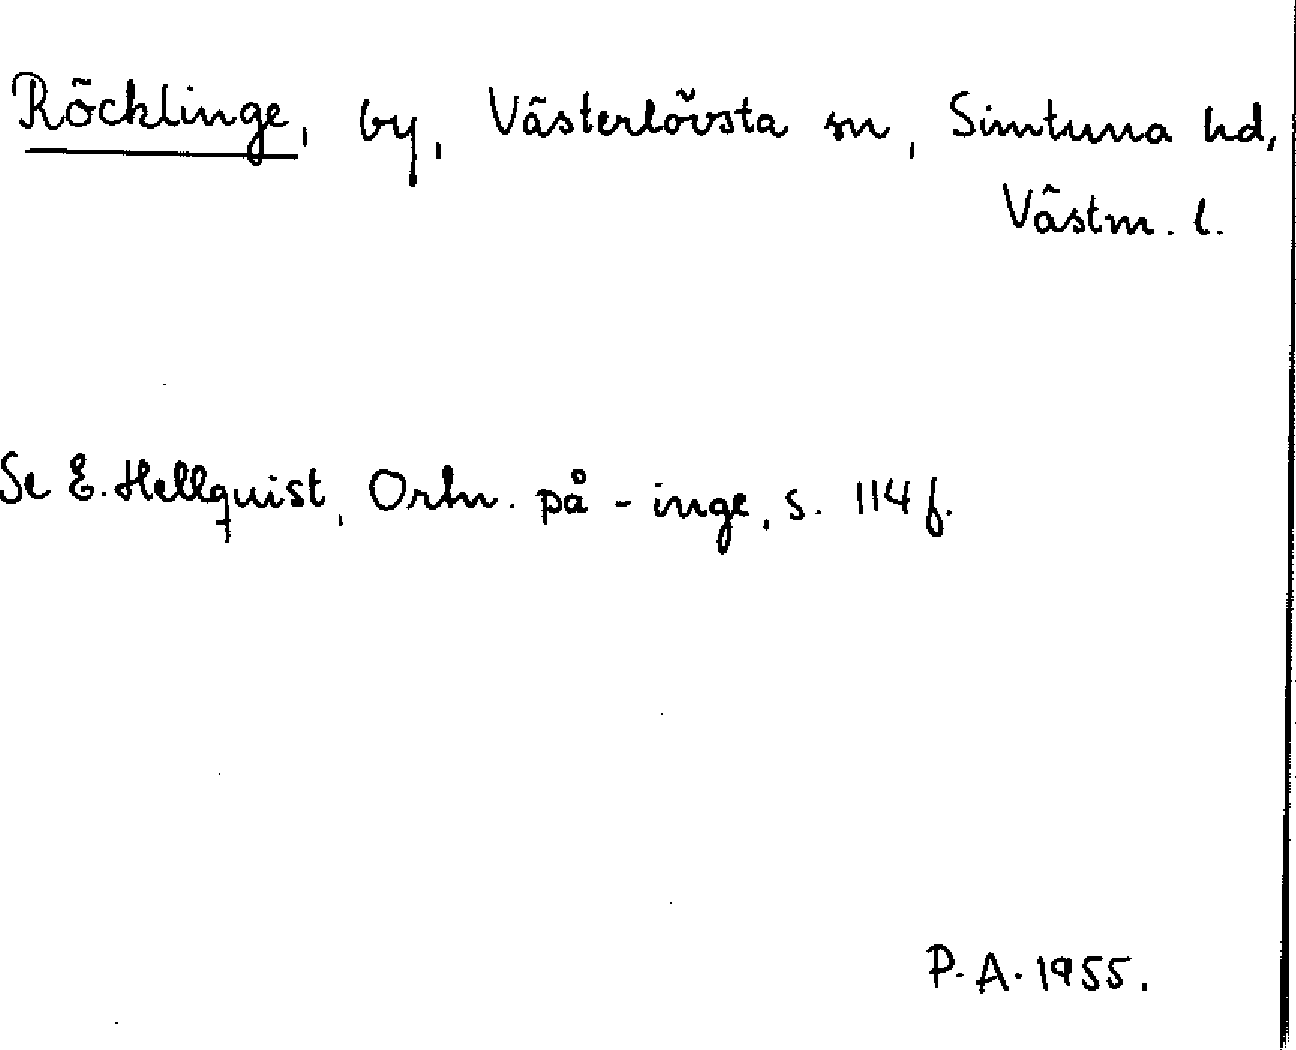 Röcklinge, by, Västerlövsta sn, Simtuna hd,
Västm. l.
Se E. Hellquist, Ortn. på -inge, s. 114 f.
P. A. 1955.